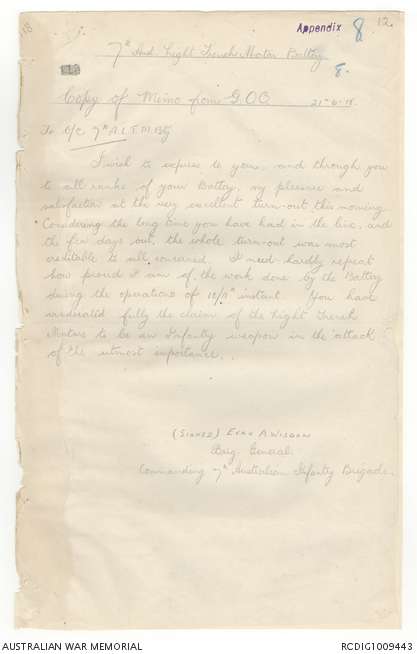 Appendix 8 12.
7th Aust Light Trench Mortar Battery
8.
Copy of Memo from G.O.C 21-6-18.
To O/C 7th A.L.T.M.Bty
I wish to express to you, and through you
to all ranks of your Battery, my pleasure and
satisfaction at the very excellent turn-out this morning.
Considering the long time you have had in the line, and
the few days out, the whole turn-out was most
creditable to all concerned. I need hardly repeat
how proud I am of the work done by the Battery
during the operations of 10/11th instant. You have
vindicated fully the claim of the Light Trench
Mortars to be an Infantry weapon in the attack
of the utmost importance.
(Signed) Evan A. Wisdom
Brig. General.
Commanding 7th Australian Infantry Brigade.
AUSTRALIAN WAR MEMORIAL RCDIG1009443